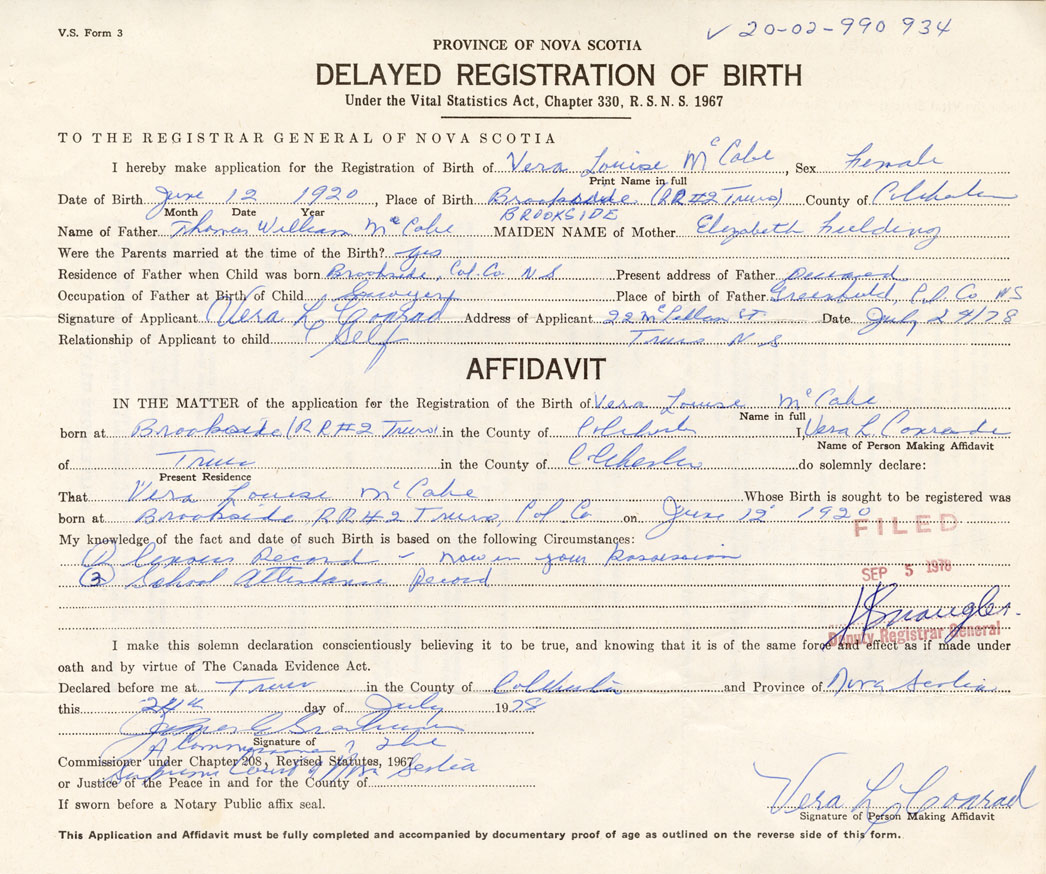 V.S. Form 3
✓ 20-02-990 934
PROVINCE OF NOVA SCOTIA
DELAYED REGISTRATION OF BIRTH
Under the Vital Statistics Act, Chapter 330, R. S. N. S. 1967
TO THE REGISTRAR GENERAL OF NOVA SCOTIA
I hereby make application for the Registration of Birth of Vera Louise McCabe, Sex Female
Print Name in full
Date of Birth June 12 1920, Place of Birth Brookside (RR#2 Truro) County of Colchester
Month Date Year BROOKSIDE
Name of Father Thomas William McCabe MAIDEN NAME of Mother Elizabeth Fielding
Were the Parents married at the time of the Birth? yes
Residence of Father when Child was born Brookside, Col. Co N S Present address of Father deceased
Occupation of Father at Birth of Child Sawyer Place of birth of Father Greenfield, Col. Co NS
Signature of Applicant Vera L Conrad Address of Applicant 22 McClellan St. Date July 24/78
Relationship of Applicant to child Self Truro N S
AFFIDAVIT
IN THE MATTER of the application for the Registration of the Birth of Vera Louise McCabe
Name in full
born at Brookside (RR#2 Truro) in the County of Colchester I, Vera L. Conrad
Name of Person Making Affidavit
of Truro in the County of Colchester do solemnly declare:
Present Residence
That Vera Louise McCabe Whose Birth is sought to be registered was
born at Brookside RR#2 Truro, Col. Co on June 12 1920
FILED
My knowledge of the fact and date of such Birth is based on the following Circumstances:
(1) Census Record - now in your possession
(2) School Attendance Record
SEP 5 1978
Deputy Registrar General
I make this solemn declaration conscientiously believing it to be true, and knowing that it is of the same force and effect as if made under
oath and by virtue of The Canada Evidence Act.
Declared before me at Truro in the County of Colchester and Province of Nova Scotia
this 24th day of July 1978
Signature of
A Commissioner of the
Commissioner under Chapter 208, Revised Statutes, 1967
Supreme Court of Nova Scotia
or Justice of the Peace in and for the County of
If sworn before a Notary Public affix seal.
Vera L Conrad
Signature of Person Making Affidavit
This Application and Affidavit must be fully completed and accompanied by documentary proof of age as outlined on the reverse side of this form.